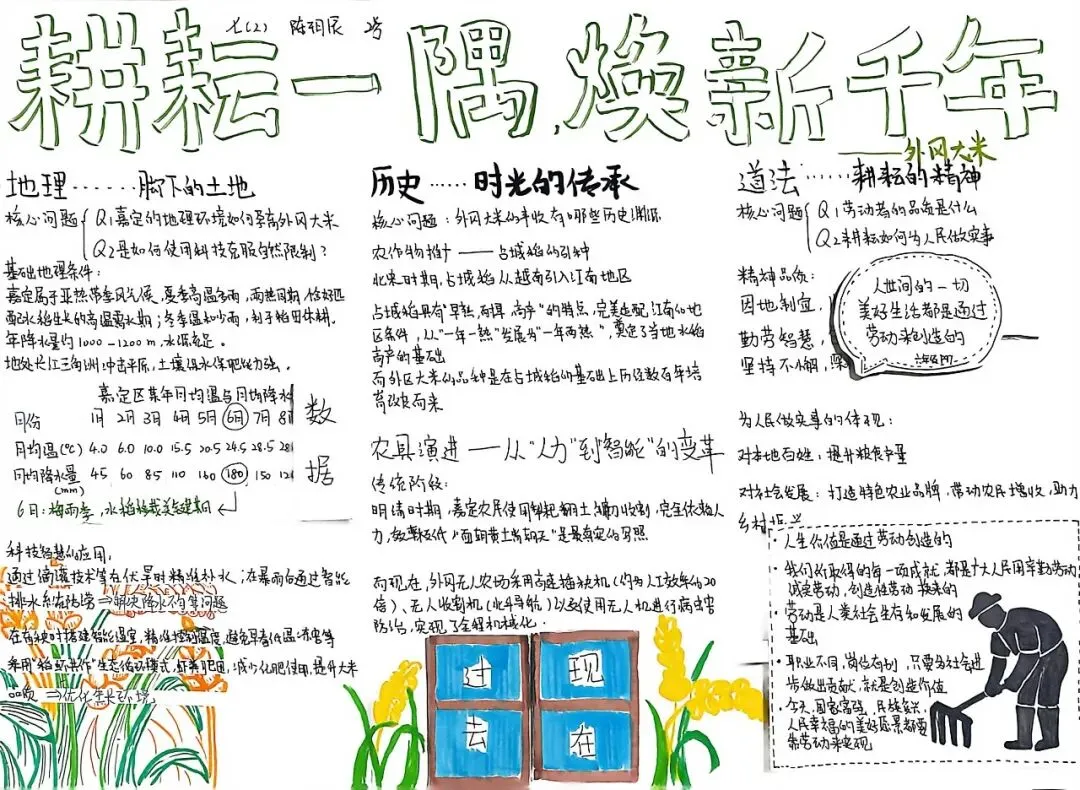 七(2) 陈玥辰 2号
耕耘一隅,焕新千年
——外冈大米
地理……脚下的土地
核心问题 Q1嘉定的地理环境如何孕育外冈大米
Q2是如何使用科技克服自然限制?
基础地理条件:
嘉定属于亚热带季风气候,夏季高温多雨,雨热同期 恰好匹
配水稻生长的高温需水期;冬季温和少雨,利于稻田休耕.
年降水量约1000-1200m,水源充足。
地处长江三角洲冲击平原,土壤保水保肥能力强。
嘉定区某年月均温与月均降水
月份 1月 2月 3月 4月 5月 6月 7月 8月
月均温(℃) 4.0 6.0 10.0 15.5 20.5 24.5 28.5 28
月均降水量 45 60 85 110 160 180 150 12
(mm)
数据
6月:梅雨季,水稻移栽关键期
科技智慧的应用:
通过滴灌技术等在伏旱时精准补水;在暴雨由通过智能
排水系统防涝⇒解决降水不匀等问题
在育秧时搭建智能温室,精准控制温度,避免早春低温冻害等
采用"稻虾共作"生态循环模式,虾粪肥田,减少化肥使用,提升大米
品质 ⇒优化生长环境
历史……时光的传承
核心问题:外冈大米的丰收有哪些历史渊源
农作物推广——占城稻的引种
北宋时期,占城稻从越南引入江南地区
占城稻具有"早熟、耐旱、高产"的特点,完美适配江南的地
区条件,从"一年一熟"发展为"一年两熟",奠定了当地水稻
高产的基础
而外区大米的品种是在占城稻的基础上历经数百年培
育改良而来
农具演进——从"人力"到"智能"的变革
传统阶段:
明清时期,嘉定农民使用铁耙翻土、镰刀收割,完全依赖人
力,效率极低,"面朝黄土背朝天"是最真实的写照
而现在,外冈无人农场采用高速插秧机(约为人工效率的20
倍)、无人收割机(北斗导航)以及使用无人机进行病虫害
防治,实现了全程机械化.
过去
现在
道法……耕耘的精神
核心问题 Q1劳动者的品质是什么
Q2耕耘如何为人民做实事
精神品质:
因地制宜,
勤劳智慧,
坚持不懈,
人世间的一切
美好生活都是通过
劳动来创造的
为人民做实事的体现:
对本地百姓:提升粮食产量
对社会发展:打造特色农业品牌,带动农民增收,助力
乡村振兴
·人生价值是通过劳动创造的
·我们所取得的每一项成就,都是广大人民用辛勤劳动
诚实劳动,创造性劳动 换来的
·劳动是人类社会生存和发展的
基础
·职业不同,岗位有别,只要为社会进
步做出贡献,就是创造价值
·今天,国家富强,民族复兴,
人民幸福的美好愿景都要
靠劳动来实现